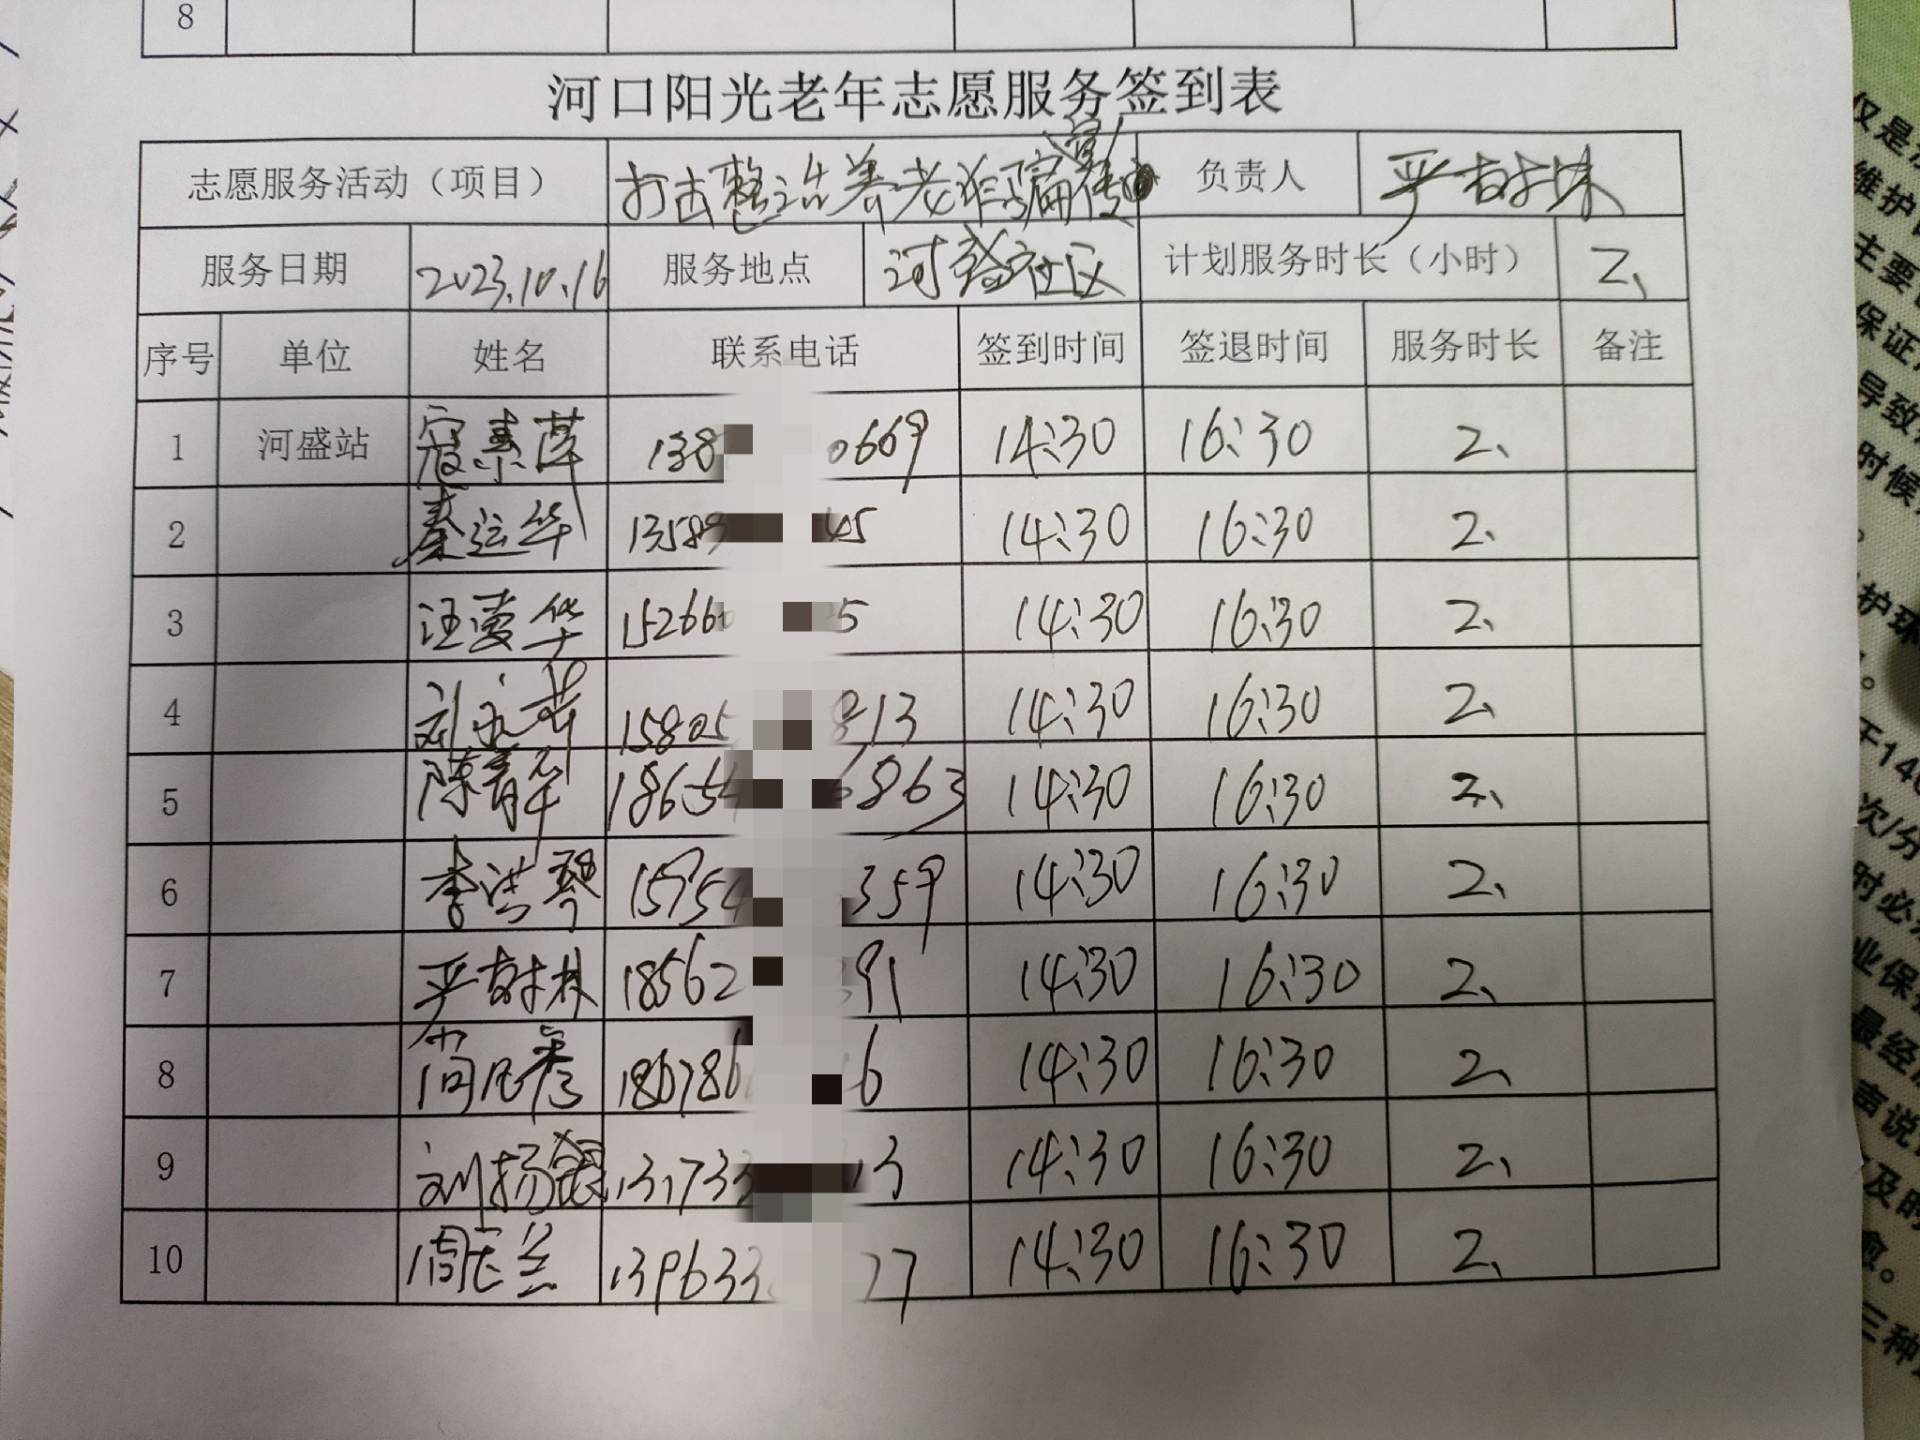 8
河口阳光老年志愿服务签到表
志愿服务活动（项目） 打击整治养老诈骗宣传 负责人 严树林
服务日期 2023.10.16 服务地点 河盛社区 计划服务时长（小时） 2、
序号 单位 姓名 联系电话 签到时间 签退时间 服务时长 备注
1 河盛站 寇素萍 138 0669 14:30 16:30 2、
2 秦运华 13589 45 14:30 16:30 2、
3 汪爱华 15266 5 14:30 16:30 2、
4 刘永芹 15805 813 14:30 16:30 2、
5 陈青华 18654 6863 14:30 16:30 2、
6 李洪琴 15954 359 14:30 16:30 2、
7 严树林 18562 91 14:30 16:30 2、
8 18678 6 14:30 16:30 2、
9 刘扬 131733 13 14:30 16:30 2、
10 139633 77 14:30 16:30 2、
仅是
维护
主要
保证
导致
时候
护环
于140
次/分
时必
业保
最经
声说
及时
愈。
三种